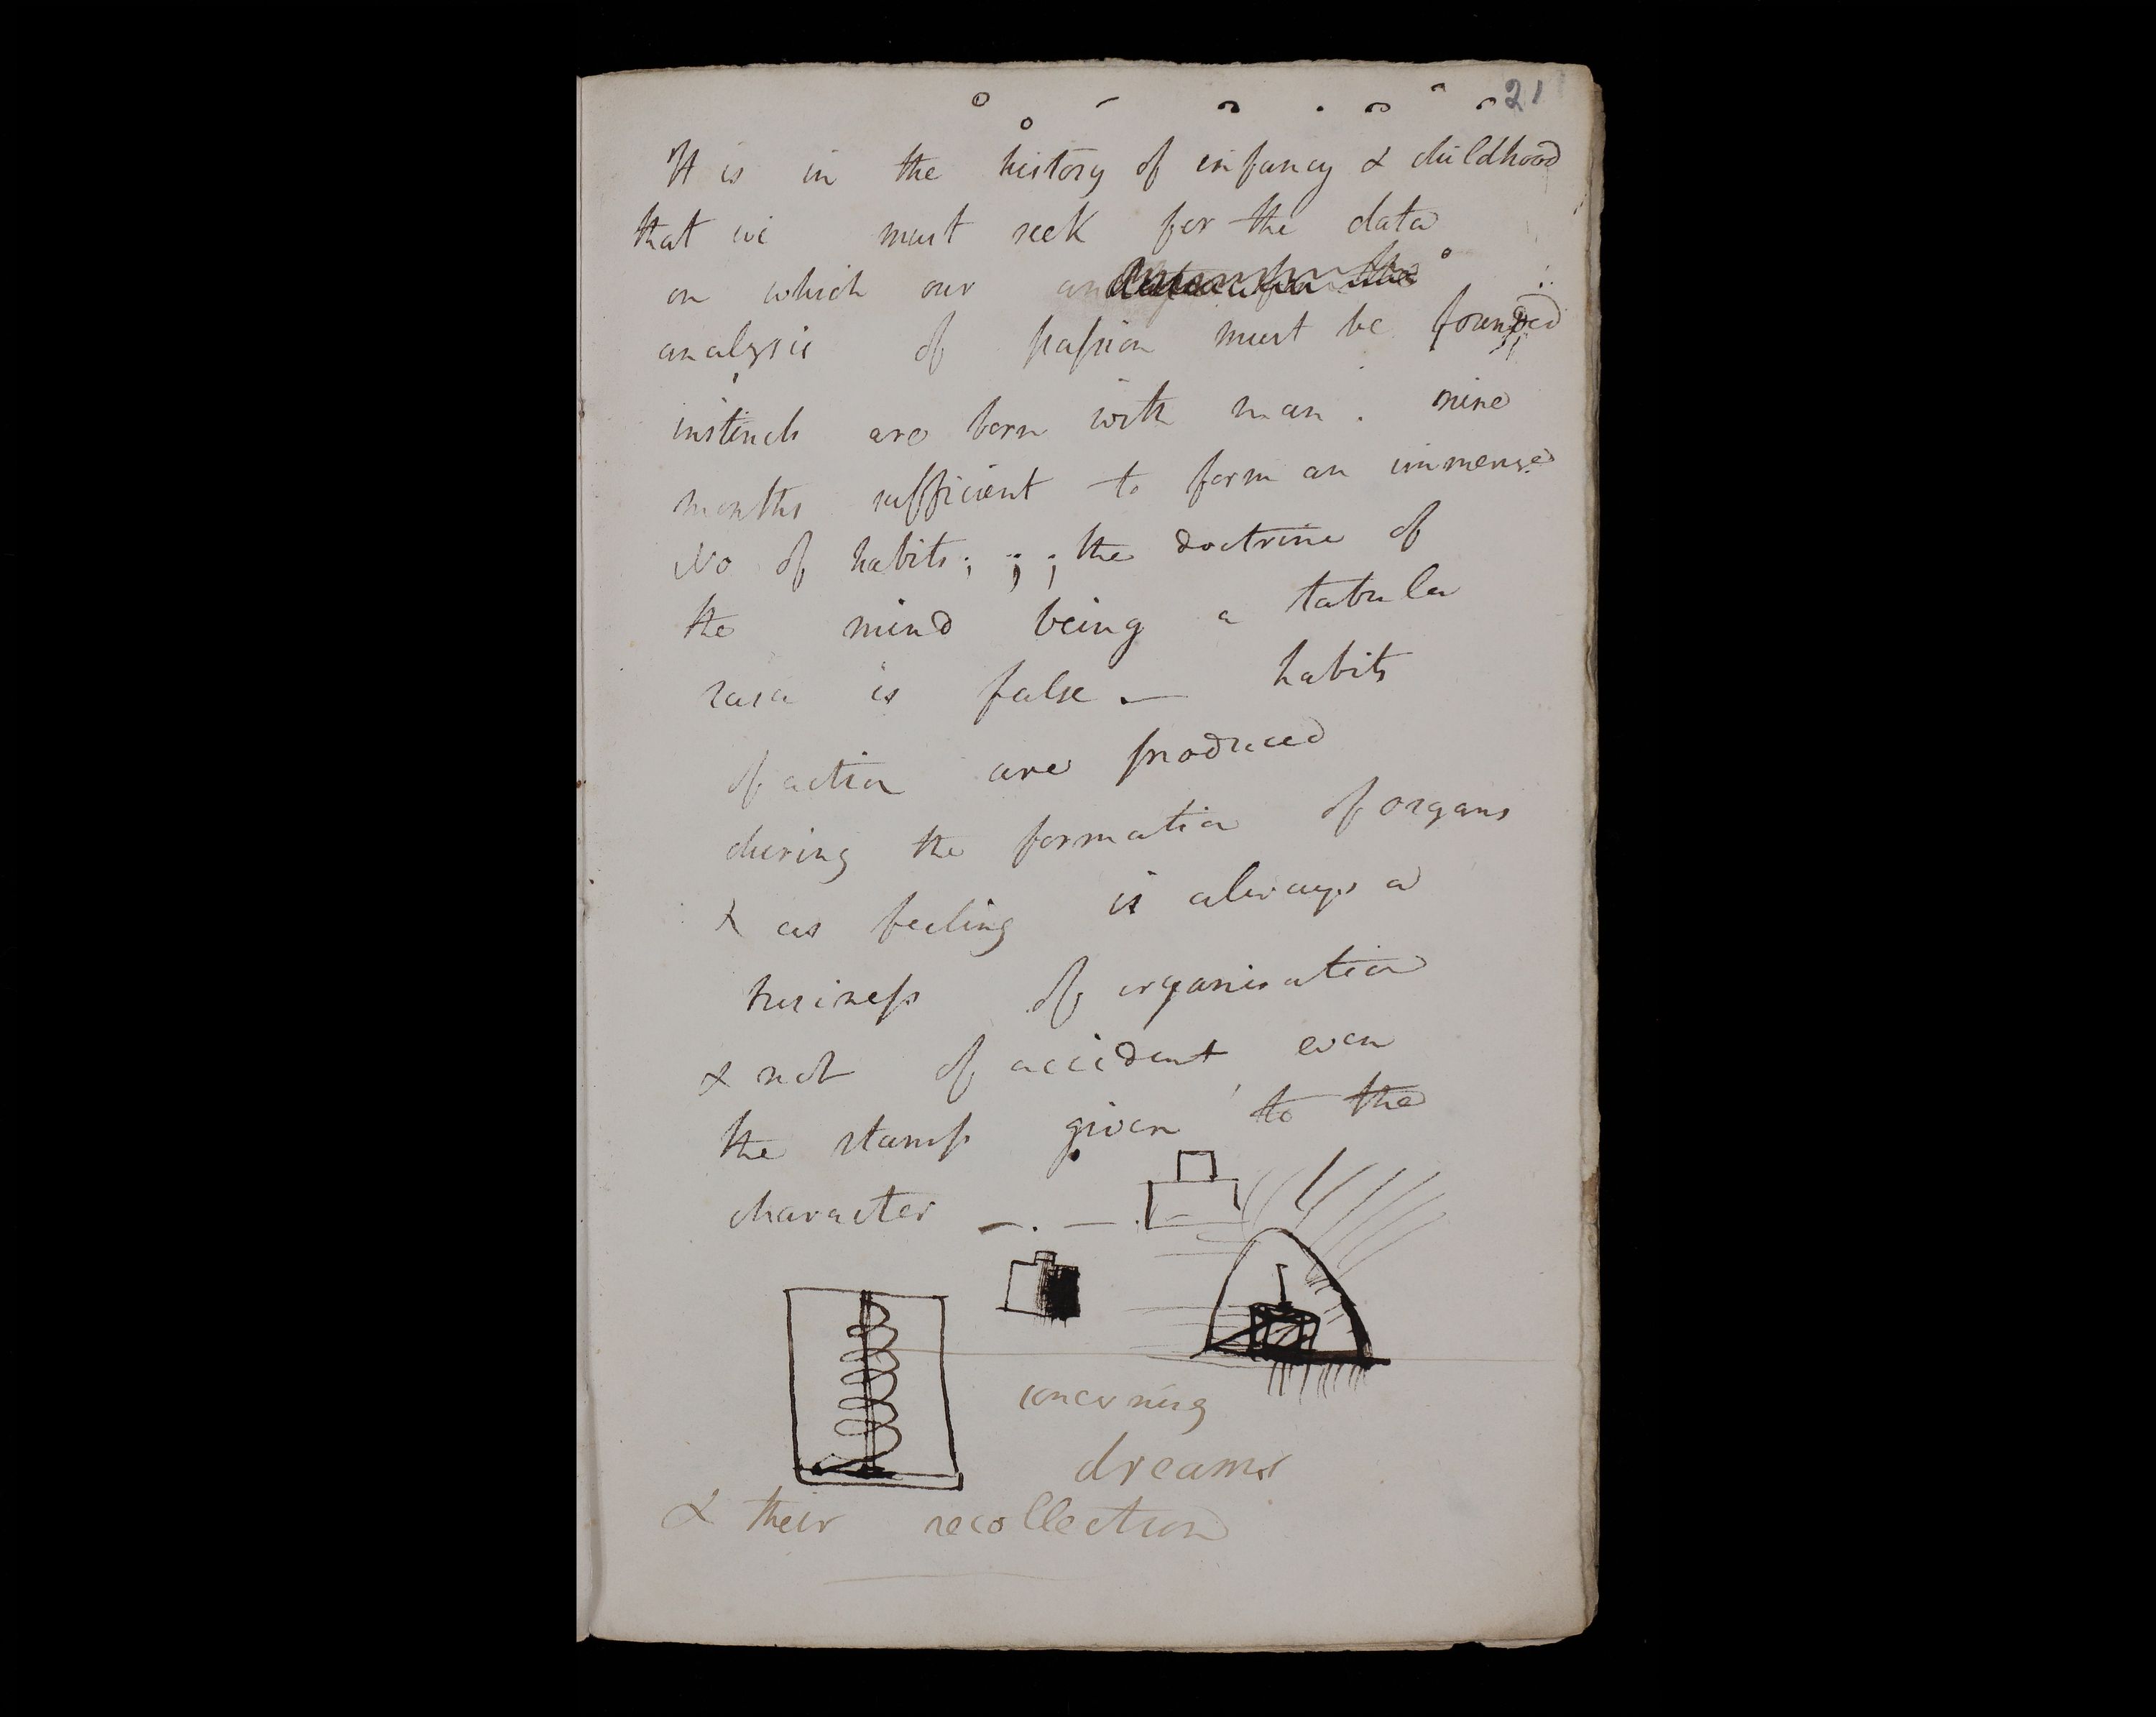 21
It is in the history of infancy & childhood
that we must seek for the data
on which our an
analysis of passion must be founded
instincts are born with man. nine
months sufficient to form an immense
No of habits; ; ; the doctrine of
the mind being a tabula
rasa is false. — habits
of action are produced
during the formation of organs
& as feeling is always a
business of organisation
& not of accident even
the stamp given to the
character — . —
concerning
dreams
& their recollection